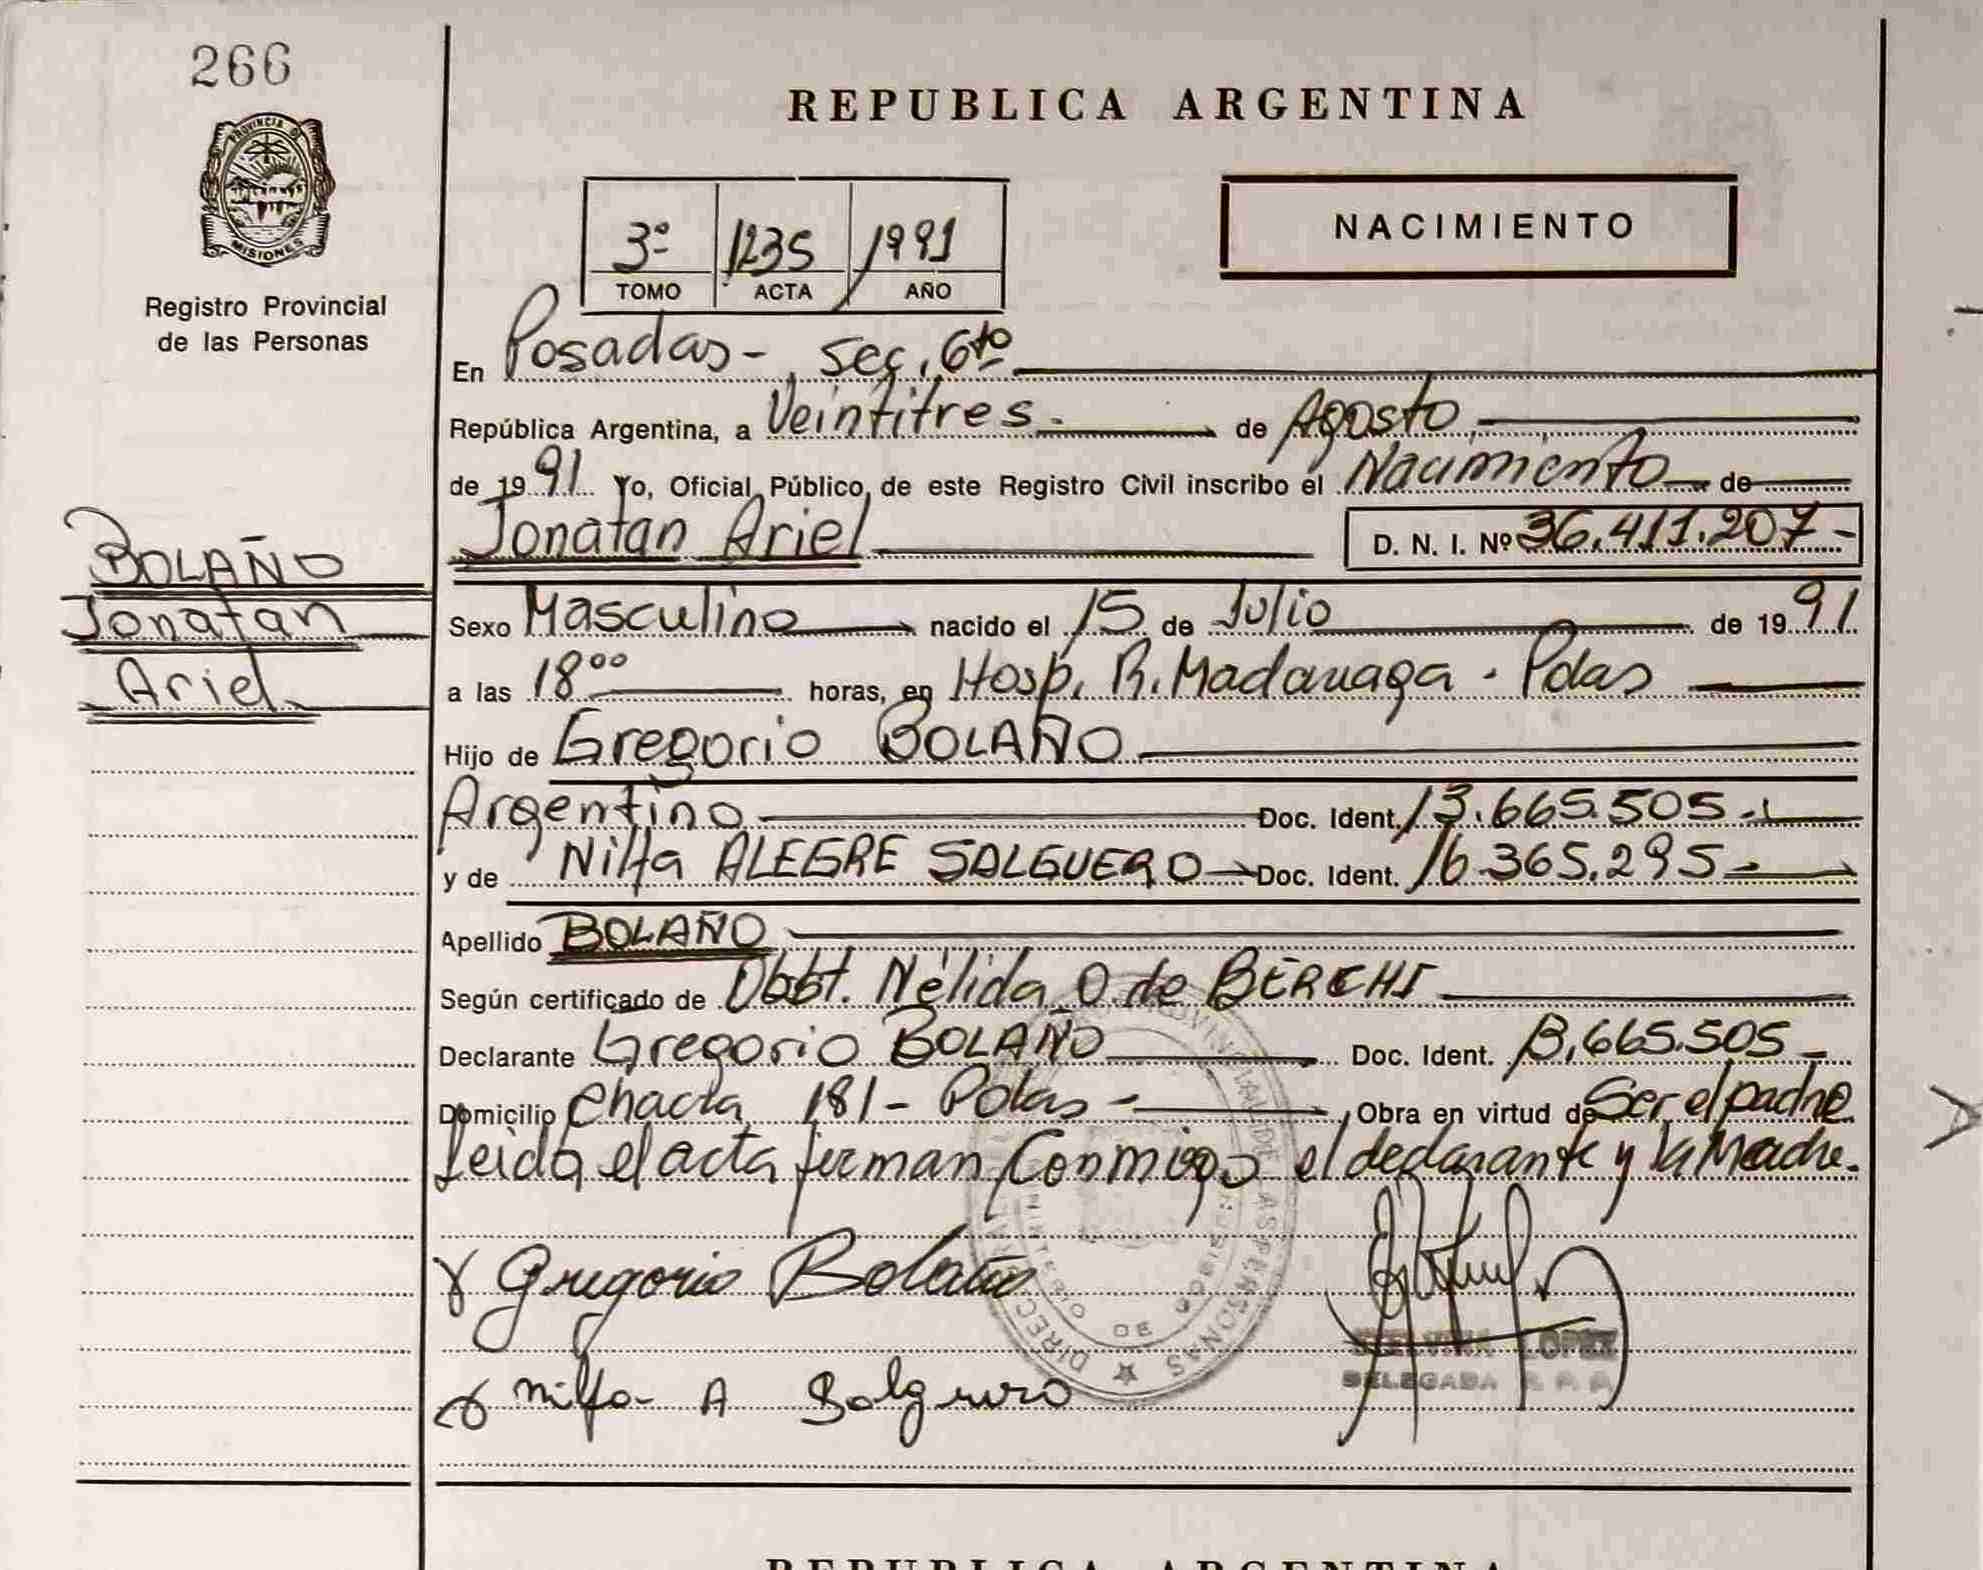 266
REPUBLICA ARGENTINA
PROVINCIA DE
MISIONES
Registro Provincial
de las Personas
3º 1235 1991
TOMO ACTA AÑO
NACIMIENTO
En Posadas - Sec. 6to
República Argentina, a Veintitres. de Agosto
de 1991 Yo, Oficial Público, de este Registro Civil inscribo el Nacimiento de
Jonatan Ariel D. N. I. Nº 36.411.207-
BOLAÑO
Jonatan
Ariel
Sexo Masculino nacido el 15 de Julio de 1991
a las 18⁰⁰ horas, en Hosp. R. Madariaga - Pdas
Hijo de Gregorio BOLAÑO
Argentino Doc. Ident. 13.665.505.-
y de Nilfa ALEGRE SALGUERO Doc. Ident. 16.365.295-
Apellido BOLAÑO
Según certificado de Obst. Nélida O. de BERCHI
Declarante Gregorio BOLAÑO Doc. Ident. 13.665.505-
Domicilio Chacra 181 - Pdas - Obra en virtud de Ser el padre
Leida el acta firman Conmigo el declarante y la Madre.
Gregorio Bolaño
Nilfa A Salguero
LOPEZ
DELEGADA R. P. P.
DE LAS PERSONAS
REPUBLICA ARGENTINA